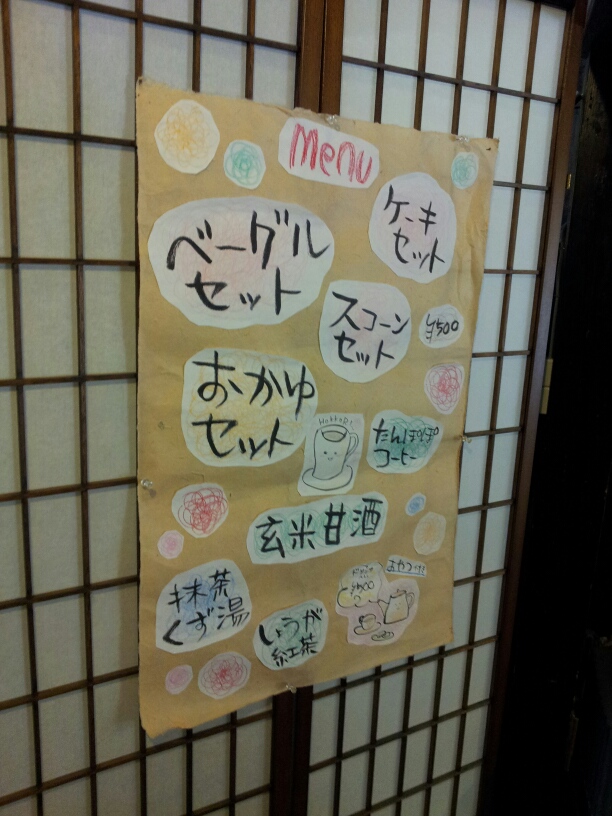 Menu
ケーキ
セット
ベーグル
セット
スコーン
セット
¥500
おかゆ
セット
HOKKORI
たんぽぽ
コーヒー
玄米甘酒
抹茶
くず湯
しょうが
紅茶
¥500
おやつ付き